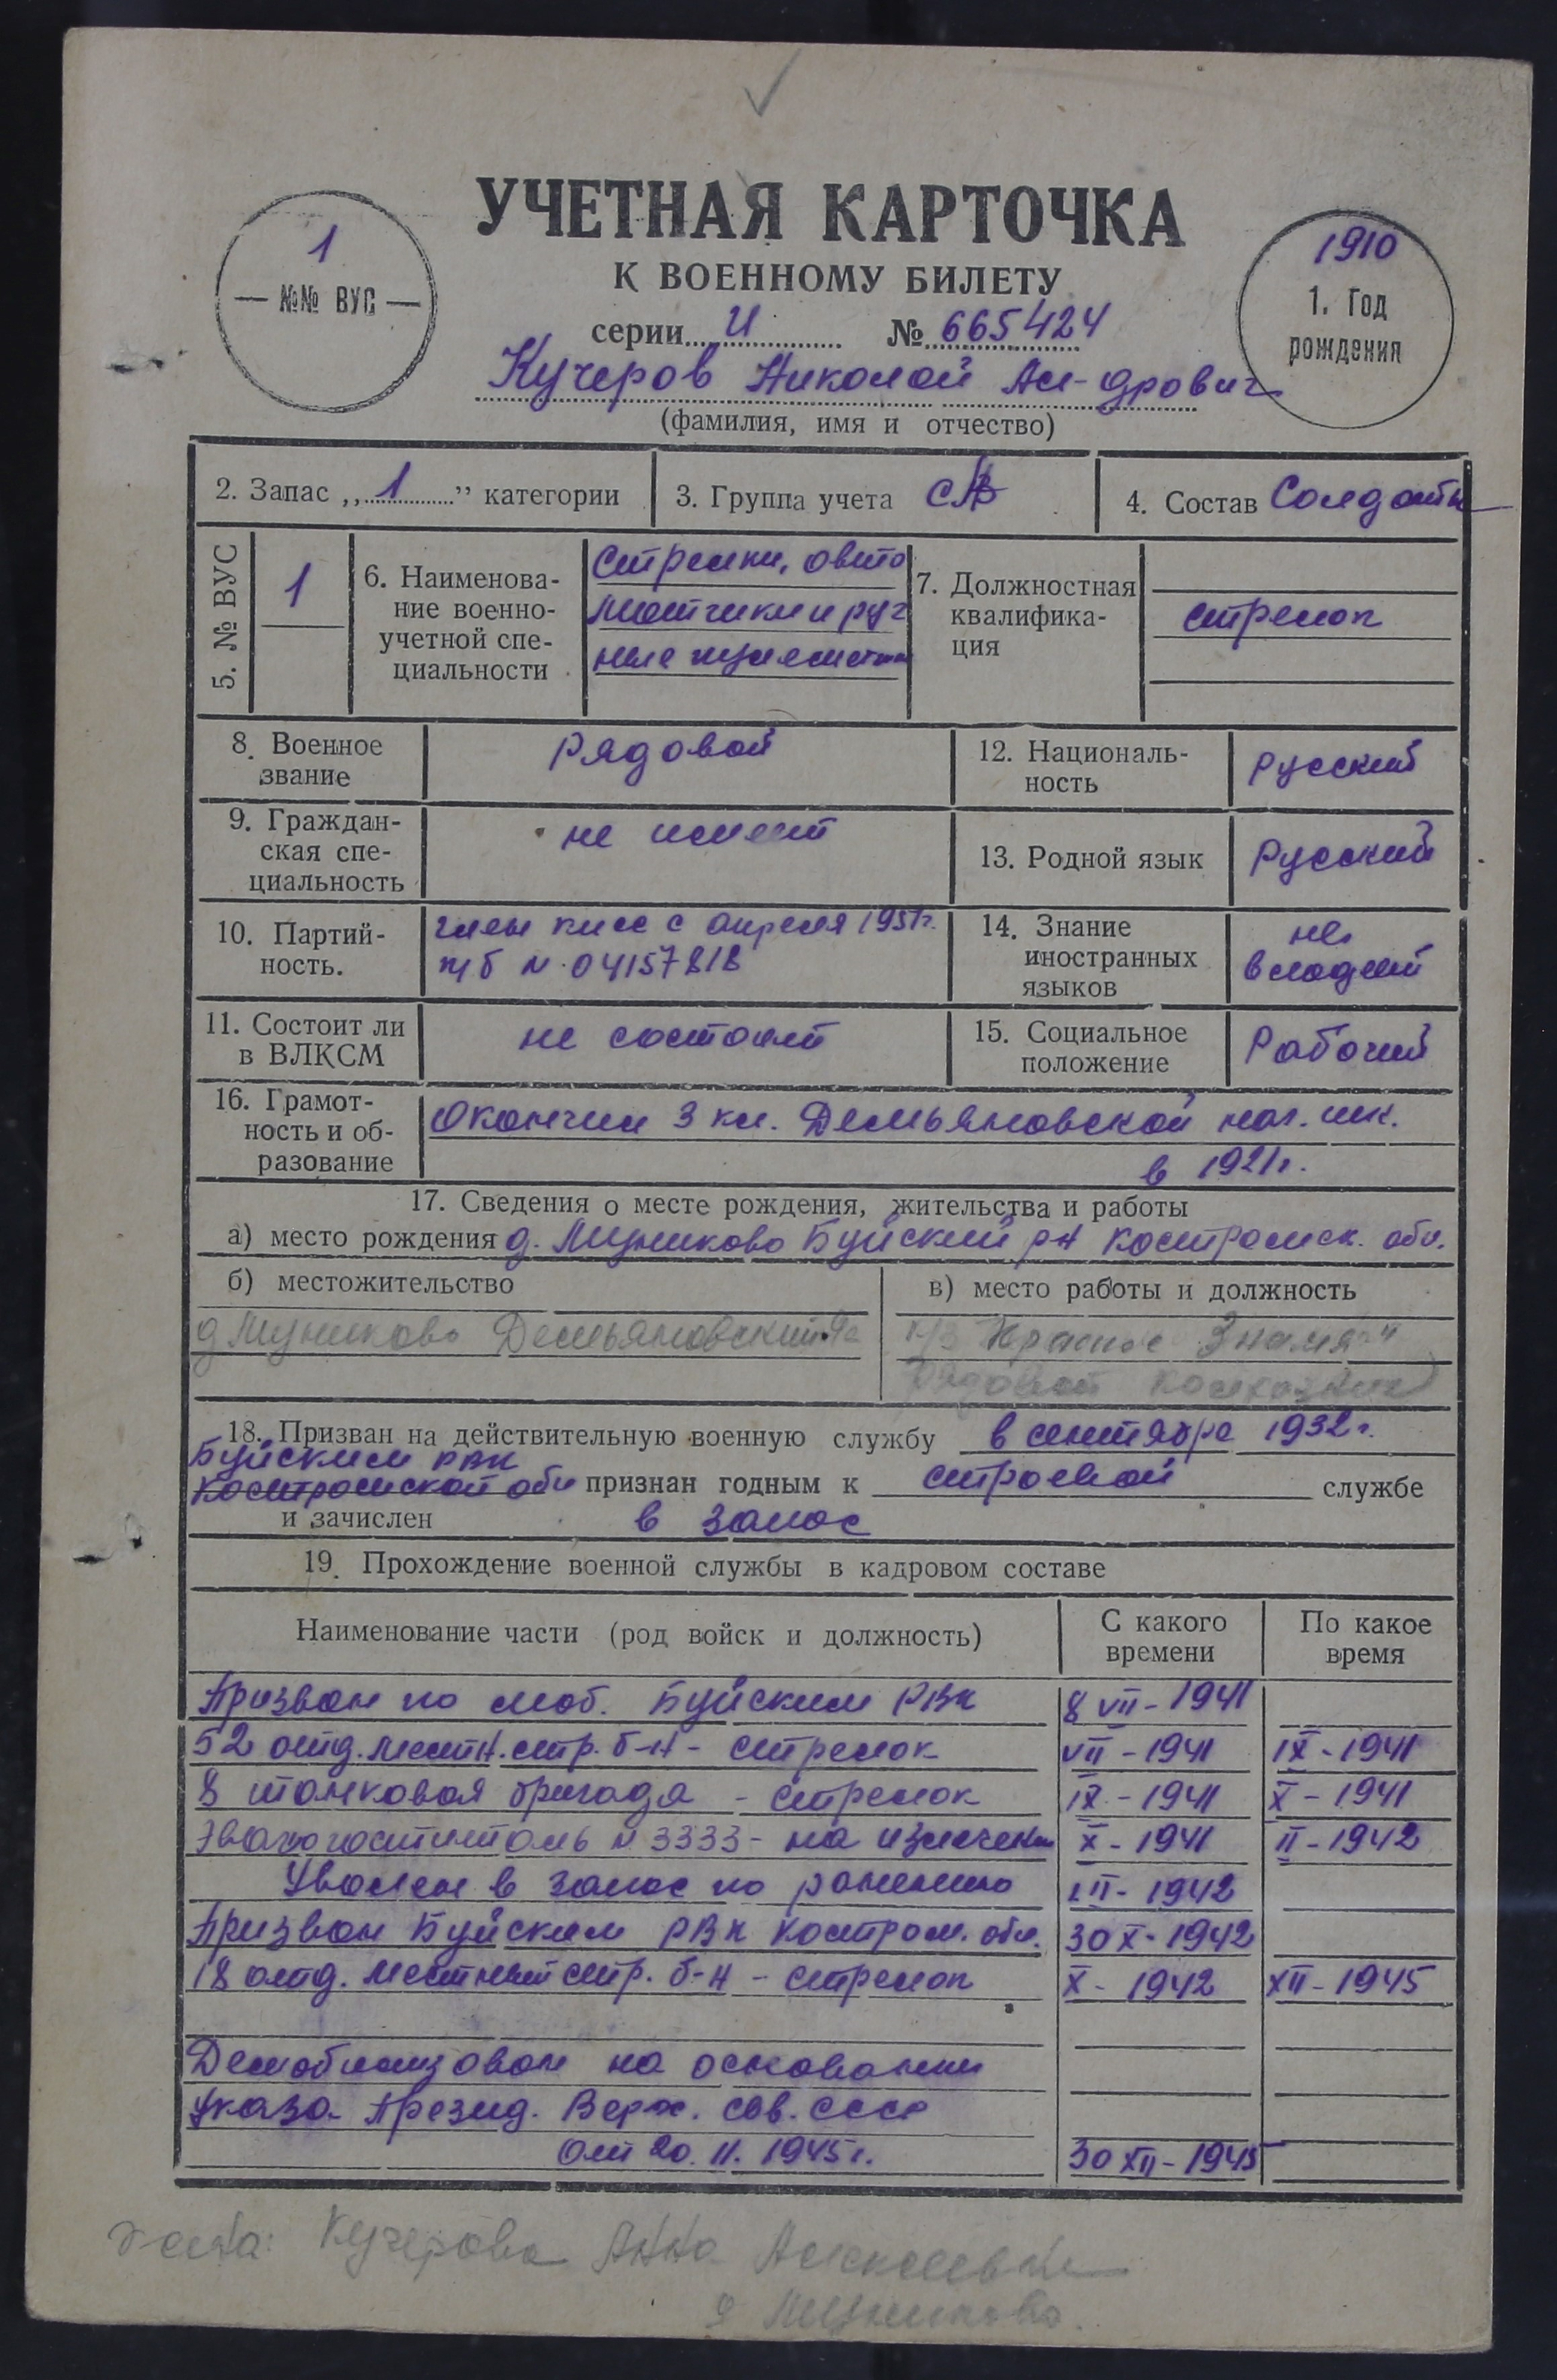 УЧЕТНАЯ КАРТОЧКА
К ВОЕННОМУ БИЛЕТУ
1
— №№ ВУС —
1910
1. Год
рождения
серии И № 665424
Кучеров Николай Ал-дрович
(фамилия, имя и отчество)
2. Запас „1” категории
3. Группа учета СА
4. Состав Солдаты
5. № ВУС
1
6. Наименова-
ние военно-
учетной спе-
циальности
Стрелки, авто
матчики и руч
ные пулеметчи
7. Должностная
квалифика-
ция
стрелок
8. Военное
звание
рядовой
12. Националь-
ность
русский
9. Граждан-
ская спе-
циальность
не имеет
13. Родной язык
Русский
10. Партий-
ность.
член КПСС с апреля 1951г.
п/б № 04157818
14. Знание
иностранных
языков
не
владеет
11. Состоит ли
в ВЛКСМ
не состоит
15. Социальное
положение
Рабочий
16. Грамот-
ность и об-
разование
Окончил 3 кл. Демьяновской нач. шк.
в 1921г.
17. Сведения о месте рождения, жительства и работы
а) место рождения д. Лизиково Буйский р-н Костромск. обл.
б) местожительство
в) место работы и должность
Демьяновский
к/з "Красное Знамя"
рядовой колхозник
18. Призван на действительную военную службу в сентябре 1932 г.
Буйским РВК
Костромской обл признан годным к строевой службе
и зачислен в запас
19. Прохождение военной службы в кадровом составе
Наименование части (род войск и должность)
С какого
времени
По какое
время
Призван по моб. Буйским РВК 8 VII - 1941
52 отд. местн. стр. б-н - стрелок VII - 1941 IX - 1941
8 танковая бригада - стрелок IX - 1941 X - 1941
Эвакогоспиталь № 3333 - на излечен X - 1941 II - 1942
Уволен в запас по ранению II - 1942
Призван Буйским РВК Костром. обл. 30 X - 1942
18 отд. местный стр. б-н - стрелок X - 1942 XII - 1945
Демобилизован на основании
Указа Презид. Верх. Сов. СССР
от 20. II. 1945г. 30 XII - 1945
жена: Кучерова Анна Алексеевна